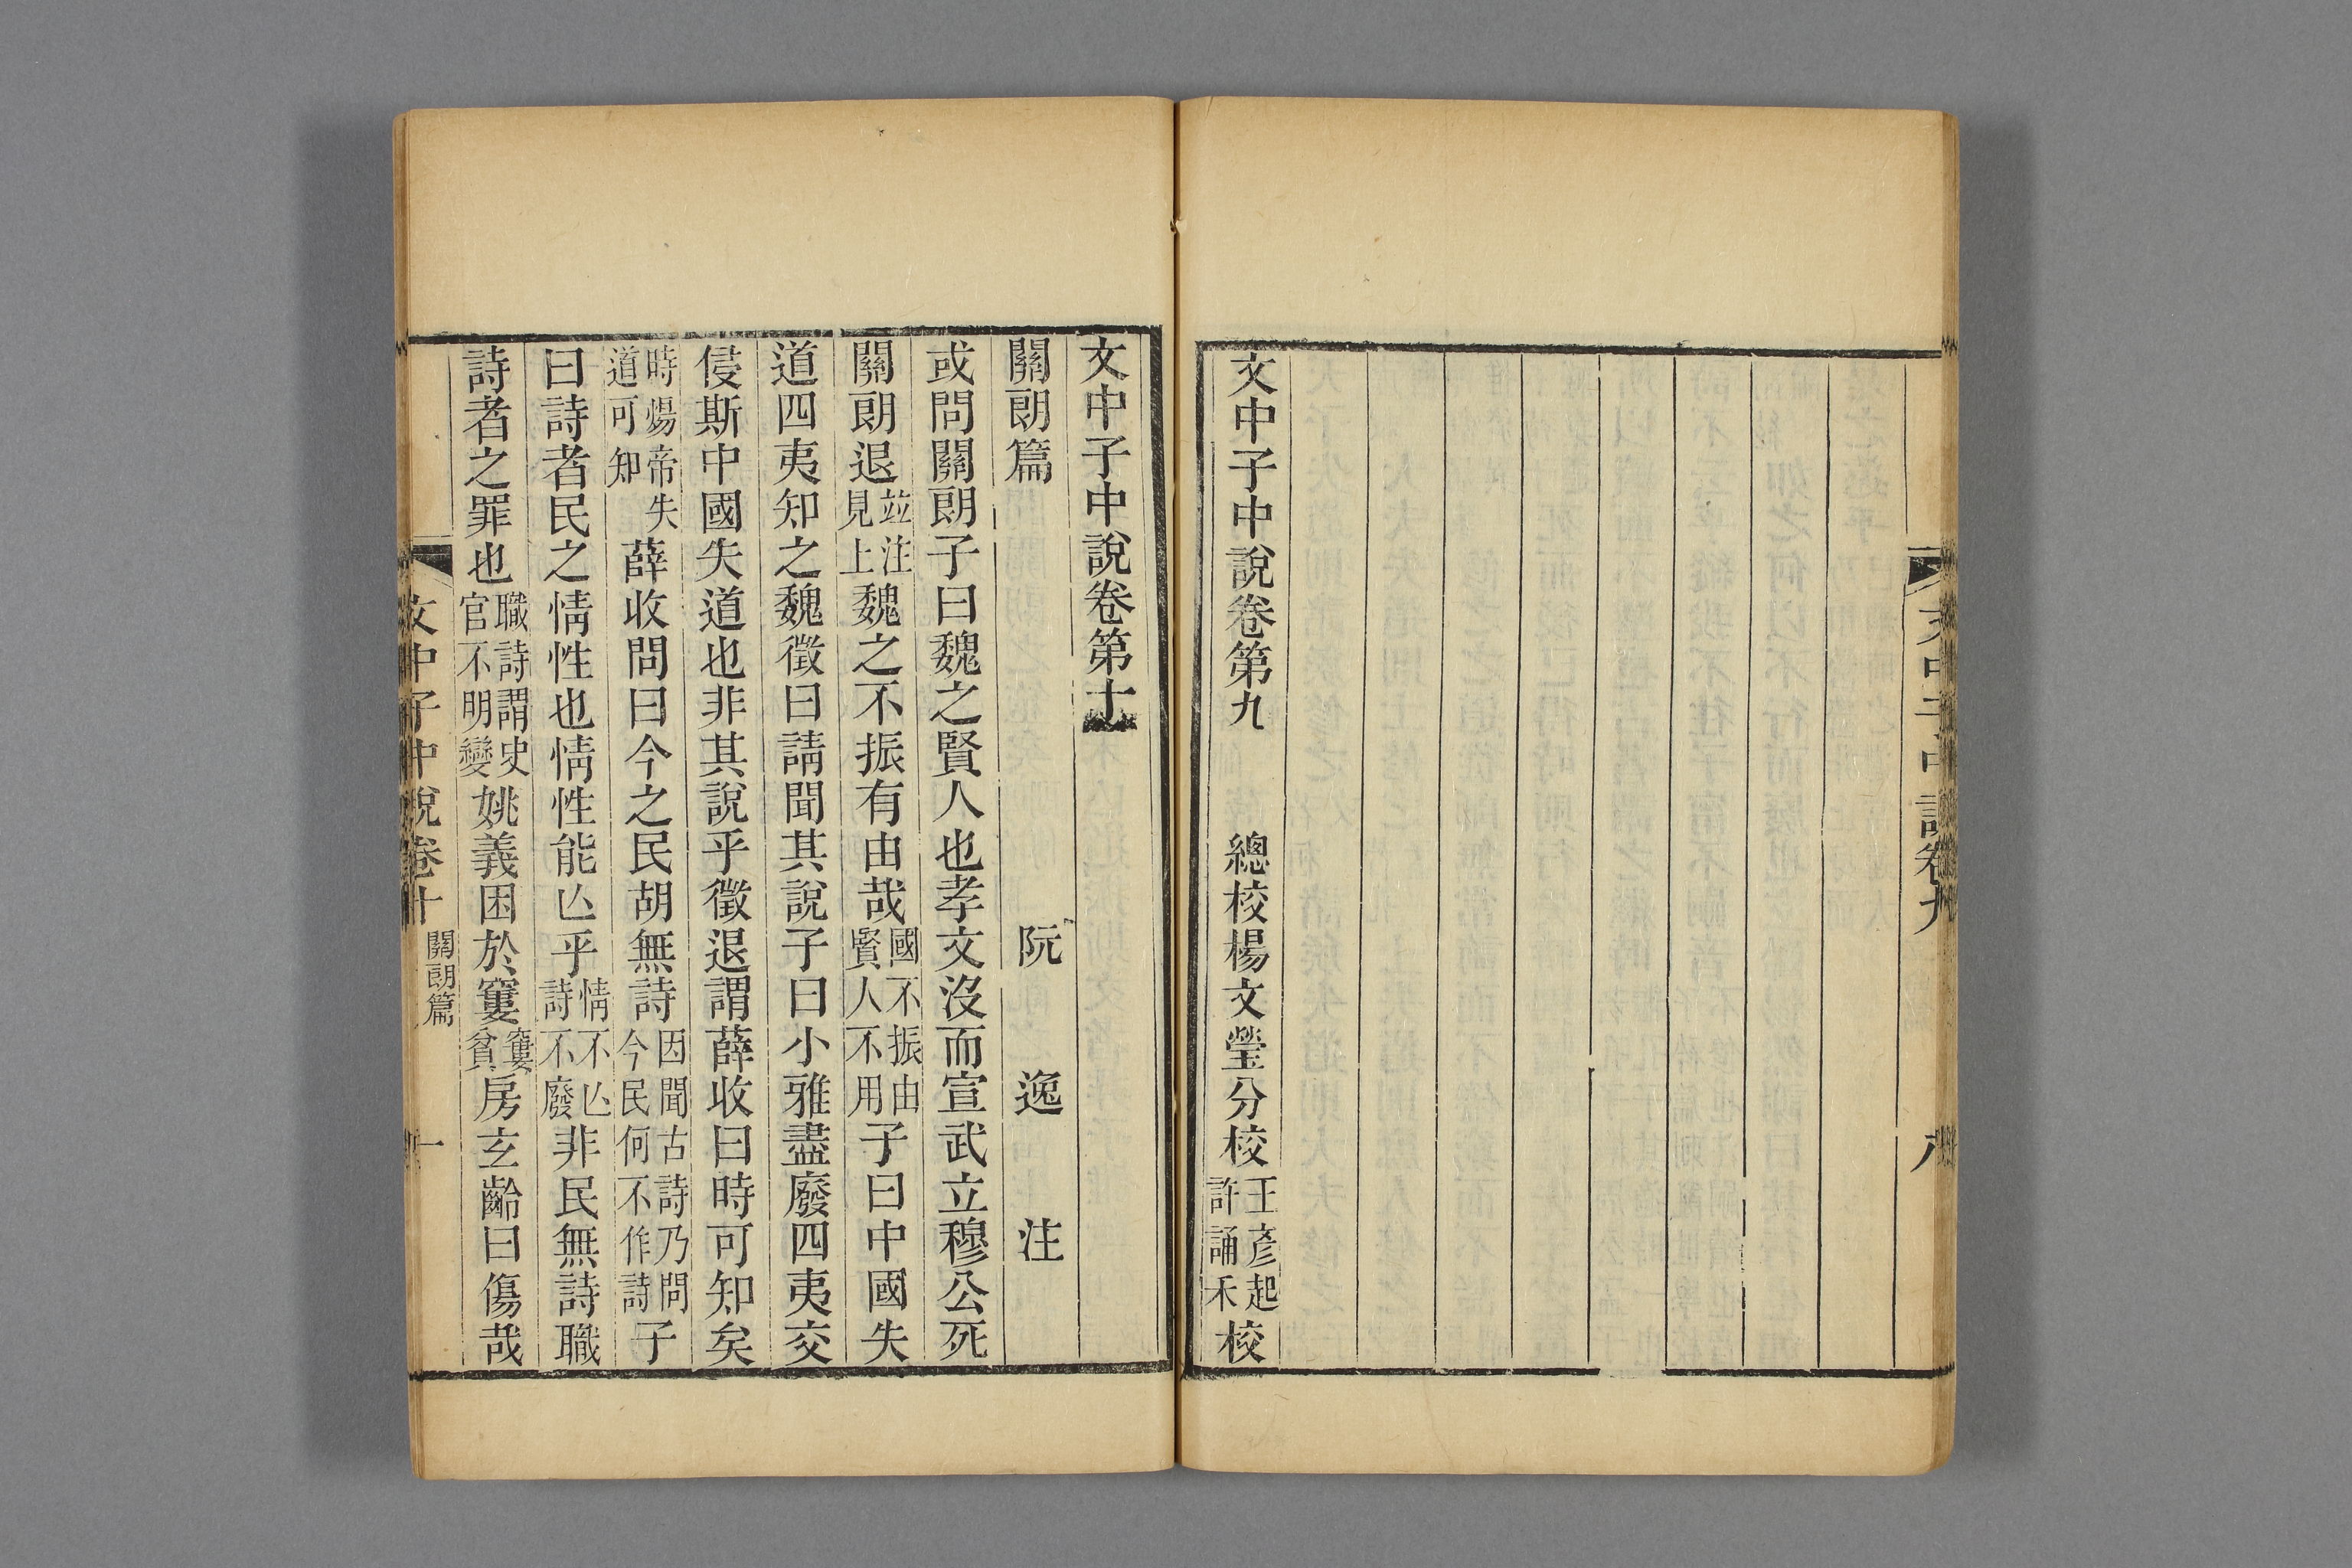 文中子中說卷九
八
文中子中說卷第九　總校楊文瑩分校王彥起許誦禾校
文中子中說卷第十
關朗篇　阮逸注
或問關朗子曰魏之賢人也孝文沒而宣武立穆公死
關朗退竝注見上魏之不振有由哉國不振由賢人不用子曰中國失
道四夷知之魏徵曰請聞其說子曰小雅盡廢四夷交
侵斯中國失道也非其說乎徵退謂薛收曰時可知矣
時煬帝失道可知薛收問曰今之民胡無詩因聞古詩乃問今民何不作詩子
曰詩者民之情性也情性能亾乎情不亾詩不廢非民無詩職
詩者之罪也職詩謂史官不明變姚義困於窶窶貧房玄齡曰傷哉
文中子中說卷十
關朗篇
一